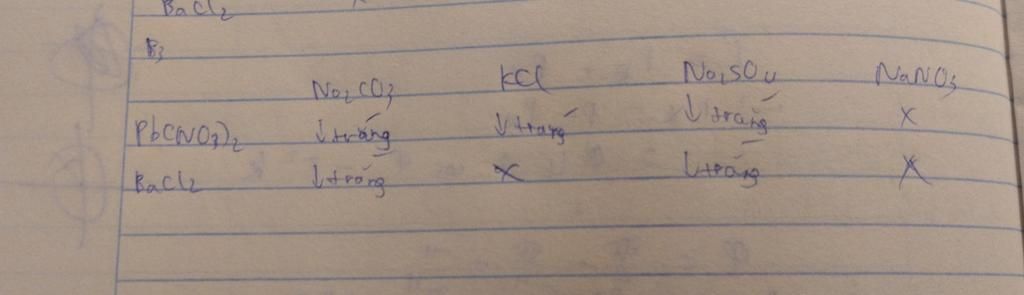 BaCl2
B3
Na2CO3 KCl Na2SO4 NaNO3
Pb(NO3)2 ↓trắng ↓trắng ↓trắng X
BaCl2 ↓trắng X ↓trắng X